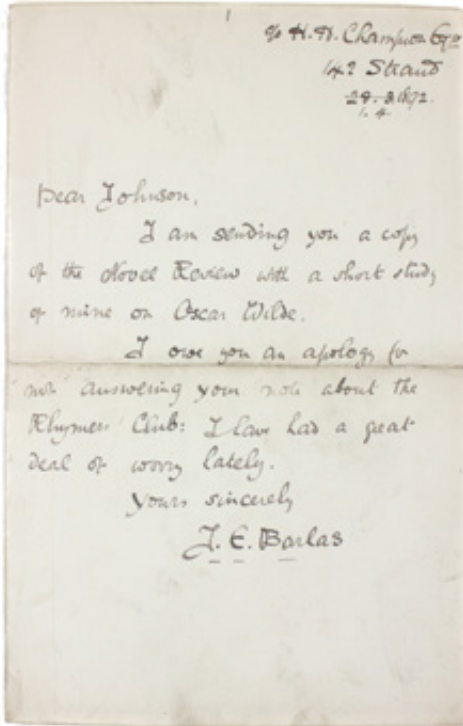 c/o H. H. Champion Esqre
142 Strand
29. 3. 1892.
1. 4.
Dear Johnson,
I am sending you a copy
of the Novel Review with a short study
of mine on Oscar Wilde.
I owe you an apology for
not answering your note about the
Rhymers Club: I have had a great
deal of worry lately.
Yours sincerely
J. E. Barlas